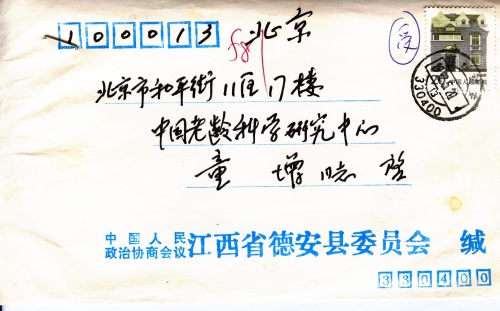 100013 北京
北京市和平街11区17楼
中国老龄科学研究中心
童增同志 启
中国人民
政治协商会议 江西省德安县委员会 缄
330400
330400